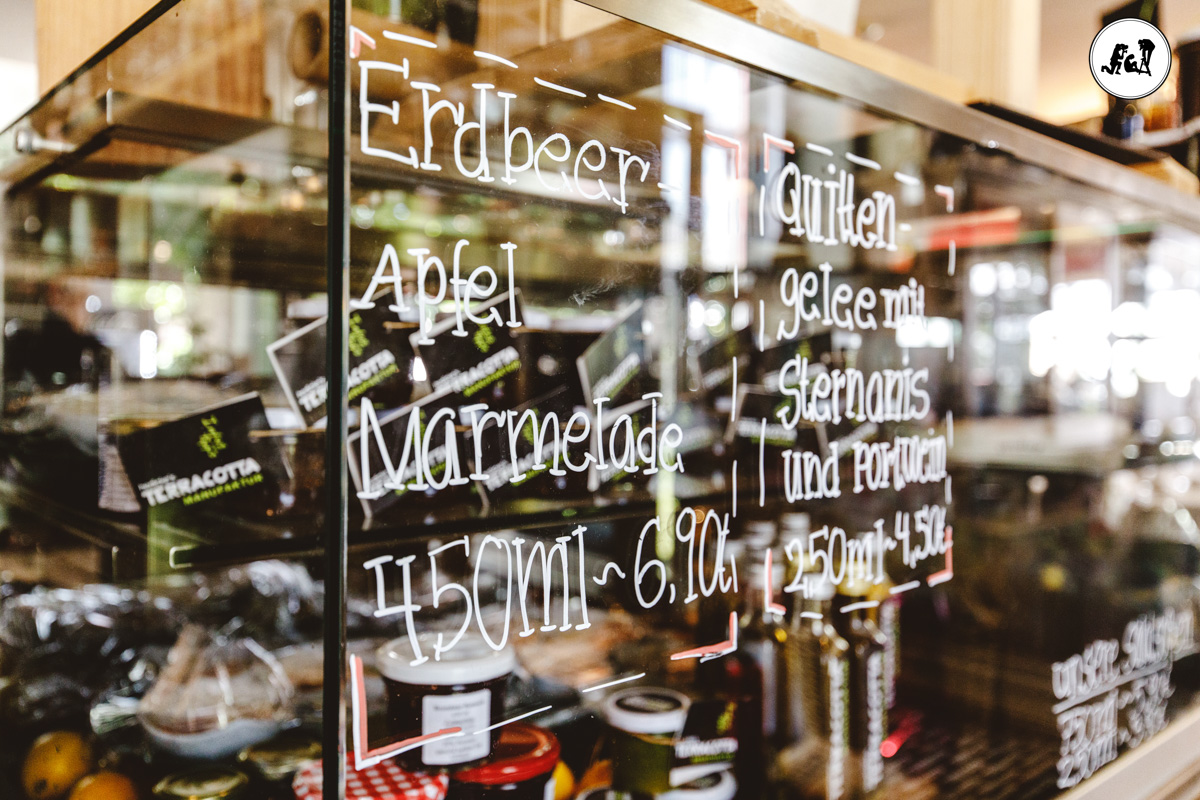 Erdbeer-
Apfel
Marmelade
450ml ~ 6,90€
Quitten-
gelee mit
Sternanis
und Portwein
250ml ~ 4,50€
TERRACOTTA
MANUFAKTUR
TERRACOTTA
MANUFAKTUR
TERRACOTTA
MANUFAKTUR
TERRACOTTA
unsere
250ml